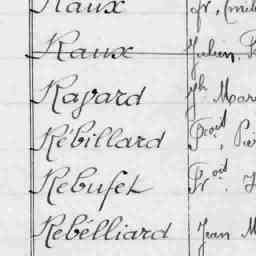 Raux
Raux Julien,
Rayard Jh Mar
Rébillard Fcoit, Pie
Rebufet Frçoit,
Rebélliard Jean M